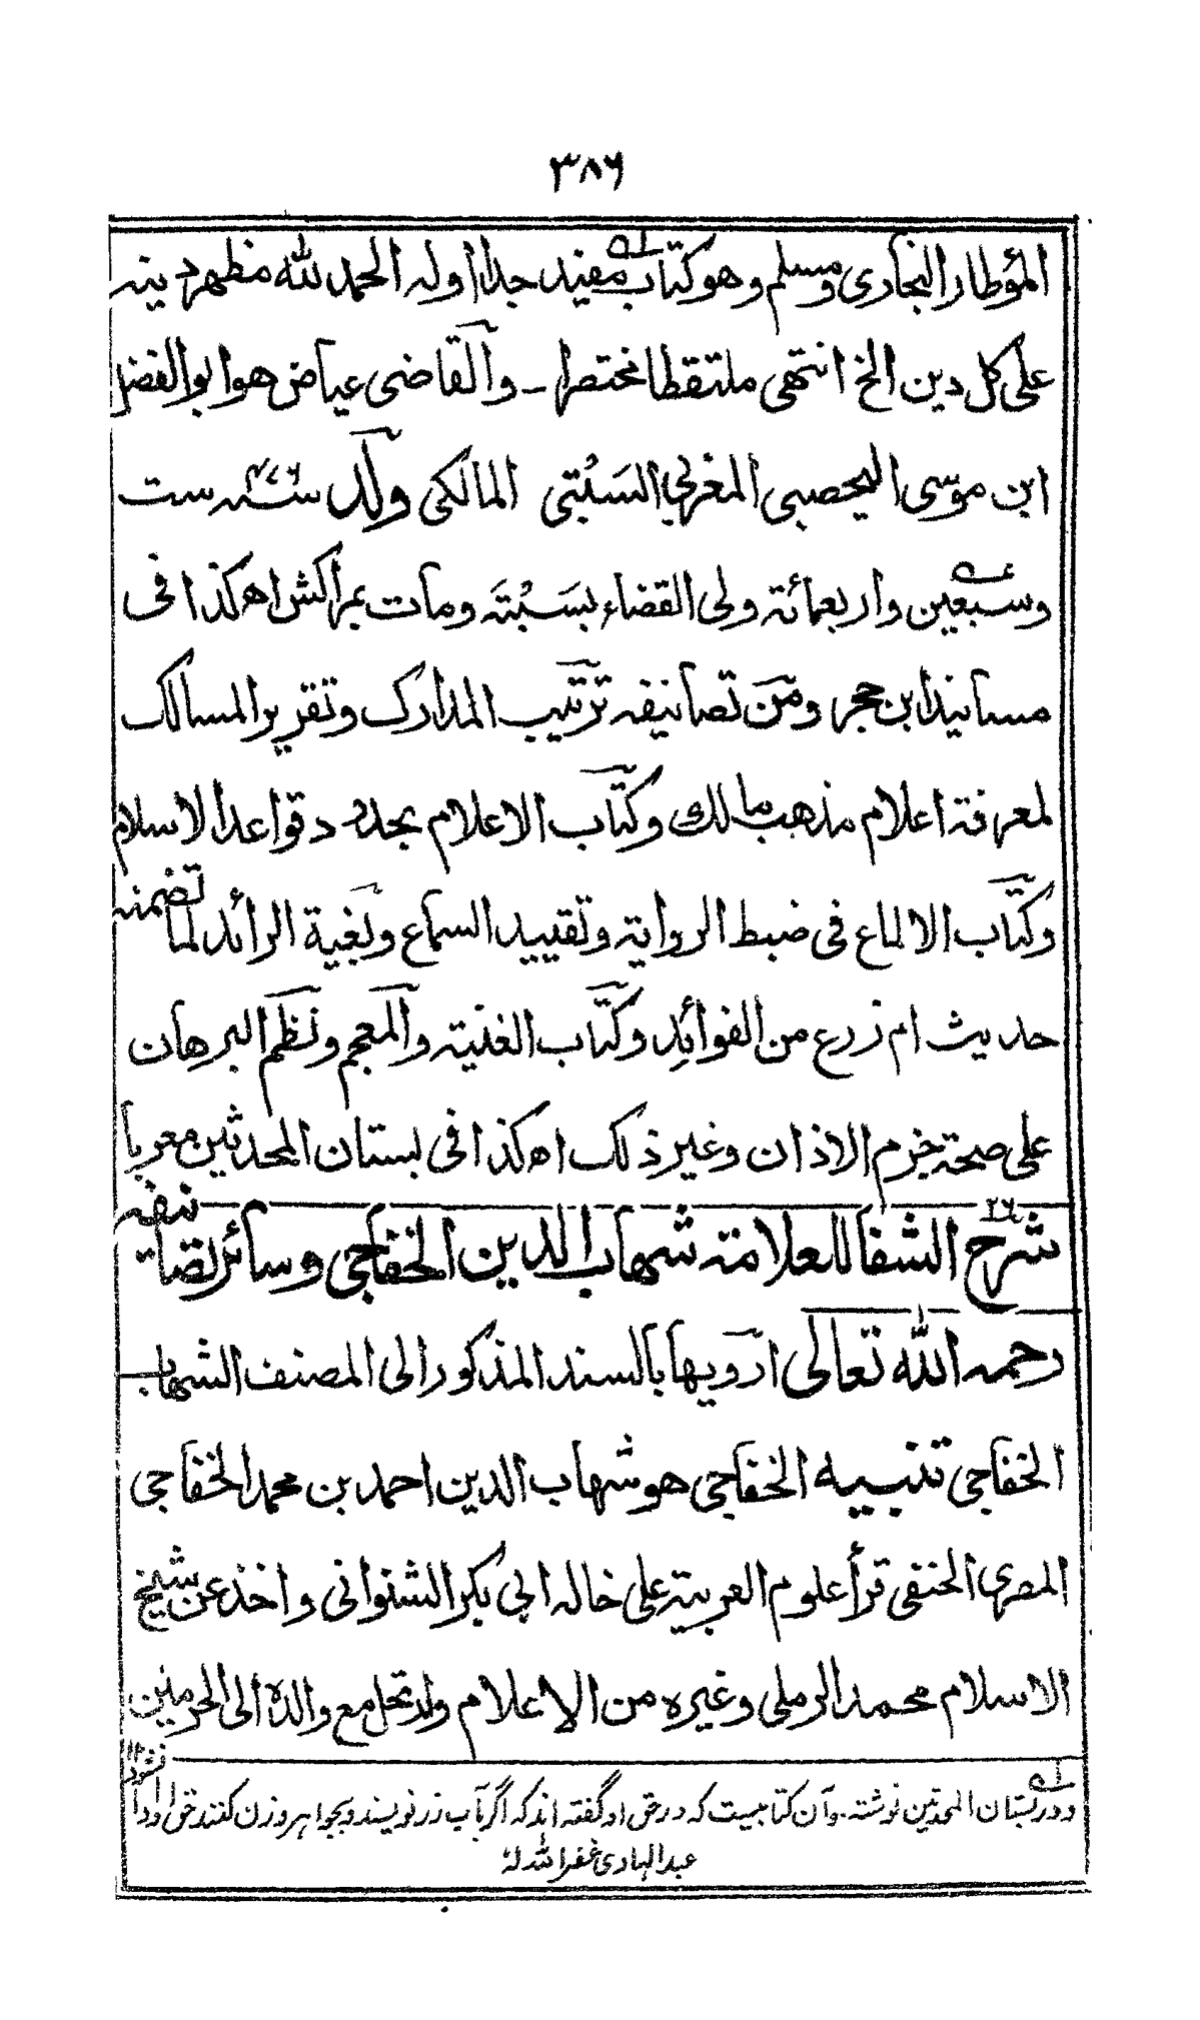 ٣٨٦
المؤطار البخاری ومسلم وهو كتاب مفيد جدا اوله الحمد لله مظهر دينه
على كل دين الخ انتهى ملتقطا مختصرا ـ والقاضى عياض هو ابو الفضل
ابن موسى اليحصبى المغربي السَبْتى المالكى ولد سنه ۴۷۶ ست
وسبعين واربعمائة ولى القضاء بسَبْتَه ومات بمراكش اه كذا فى
مسانيد ابن حجر ومن تصانيفه ترتيب المدارك وتقرير المسالك
لمعرفة اعلام مذهب مالك وكتاب الاعلام بحدود قواعد الاسلام
وكتاب الالماع فى ضبط الرواية وتقييد السماع وبغية الرائد لما تضمنه
حديث ام زرع من الفوائد وكتاب الغنية والمعجم ونظم البرهان
على صحة جزم الاذان وغير ذلك اه كذا فى بستان المحدثين معربا
٢٦ شرح الشفا للعلامة شهاب الدين الخفاجى وسائر تصانيفه
رحمه الله تعالى ارويها بالسند المذكور الى المصنف الشهاب
الخفاجى تنبيه الخفاجى هو شهاب الدين احمد بن محمد الخفاجى
المصرى الحنفى قرأ علوم العربية على خاله ابي بكر الشنوانى واخذ عن شيخ
الاسلام محمد الرملى وغيره من الاعلام وارتحل مع والده الى الحرمين
ودر بستان المحدثين نوشته. وآن کتابیست که در حق او گفته اند که اگر بآب زر نویسند و بجواهر وزن کنند حق او ادا نشود ١٢
عبد الهادی غفر الله له